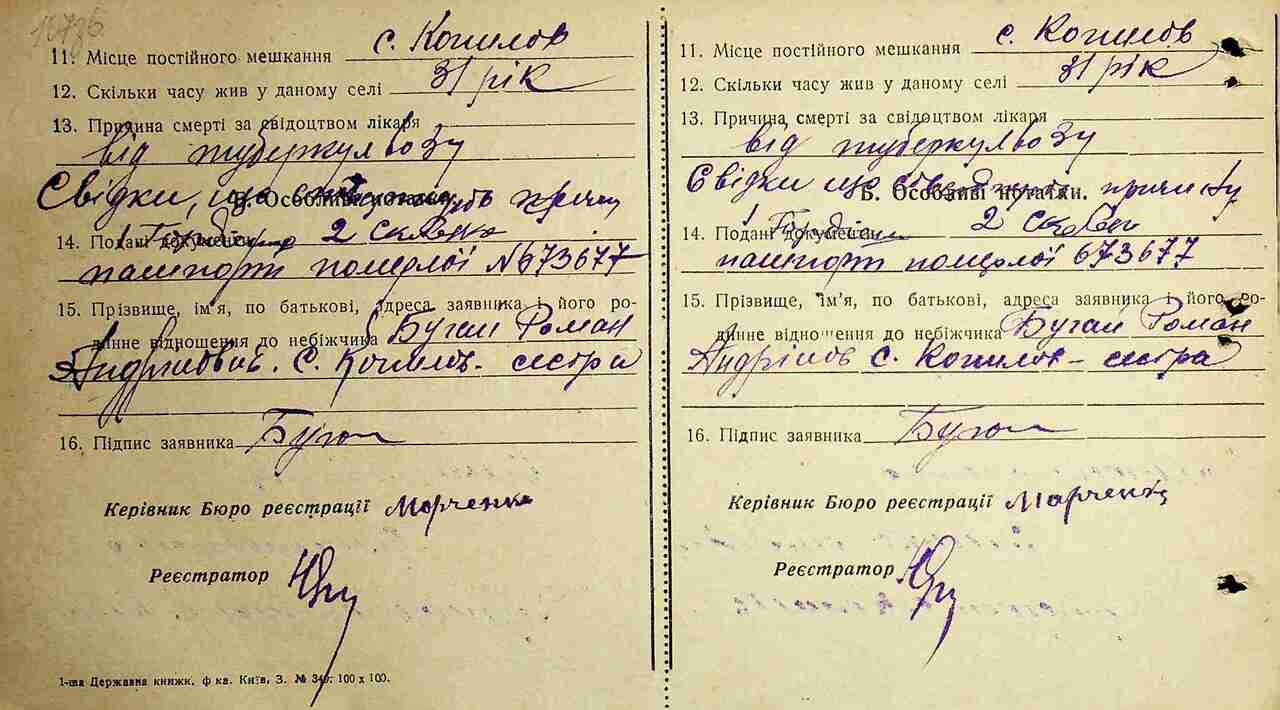 с. Копилов
11. Місце постійного мешкання
31 рік
12. Скільки часу жив у даному селі
13. Причина смерті за свідоцтвом лікаря
від туберкульозу
Свідки, що
Б. Особливі нотатки.
14. Подані документи 2
пашпорт померлої №673677
15. Прізвище, ім'я, по батькові, адреса заявника і його ро-
динне відношення до небіжчика Бугай Роман
с. Копилов - сестра
16. Підпис заявника
Керівник Бюро реєстрації Марченко
Реєстратор
1-ша Державна книжк. ф-ка. Київ, З. № 349. 100 х 100.
с. Копилов
11. Місце постійного мешкання
31 рік
12. Скільки часу жив у даному селі
13. Причина смерті за свідоцтвом лікаря
від туберкульозу
Свідки що
Б. Особливі нотатки.
14. Подані документи 2
пашпорт померлої 673677
15. Прізвище, ім'я, по батькові, адреса заявника і його ро-
динне відношення до небіжчика Бугай Роман
с. Копилов - сестра
16. Підпис заявника
Керівник Бюро реєстрації Марченко
Реєстратор